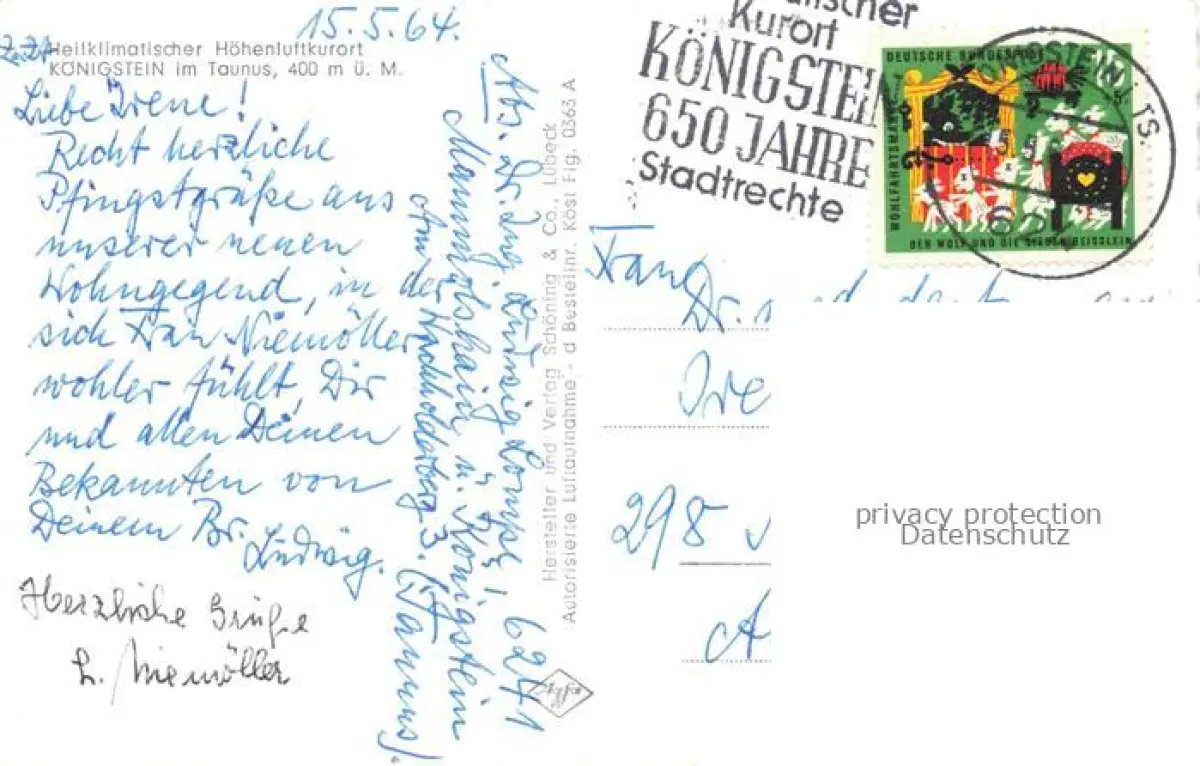 15.5.64.
Heilklimatischer Höhenluftkurort
KÖNIGSTEIN im Taunus, 400 m ü. M.
Liebe Irene!
Recht herzliche
Pfingstgrüße aus
unserer neuen
Wohngegend, in der
sich Frau Niemöller
wohler fühlt Dir
und allen Deinen
Bekannten von
Deinem Br.
Ludwig.
Herzliche Grüße
L. Niemöller
Abs. Dr. Ing. Ludwig 6241
Mammolshain ü. Königstein
Am Wachholderberg 3. (Taunus).
Hersteller und Verlag Schöning & Co., Lübeck
Autorisierte Luftaufnahme - d Bestellnr. Köst Fig. 0363 A
Kurort
KÖNIGSTEIN
650 JAHRE
Stadtrechte
DEUTSCHE BUNDESPOST
WOHLFAHRTSMARKE
DER WOLF UND DIE SIEBEN GEISSLEIN
TS.
Dr.
Ire
298
privacy protection
Datenschutz